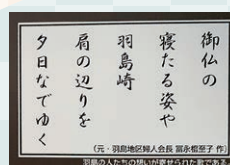 御仏の
寝たる姿や
羽島崎
肩の辺りを
夕日なでゆく
(元・羽島地区婦人会長 冨永榧至子 作)
羽島の人たちの想いが寄せられた歌である